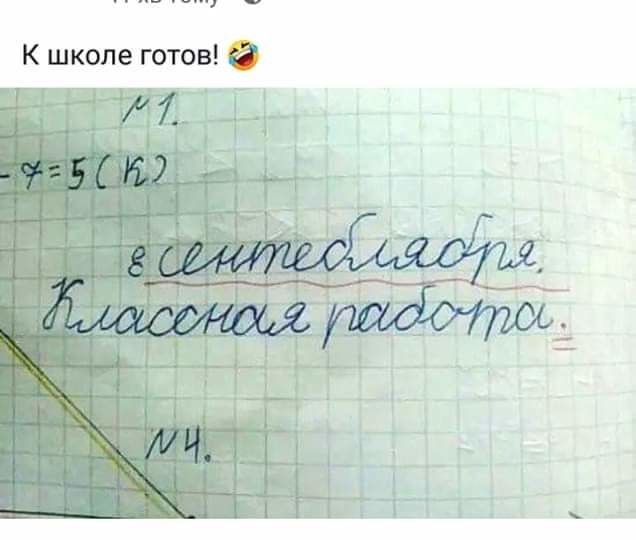 К школе готов! 🤣
№1.
- 7 = 5 ( К )
8 сентеблября.
Классная работа.
№4.